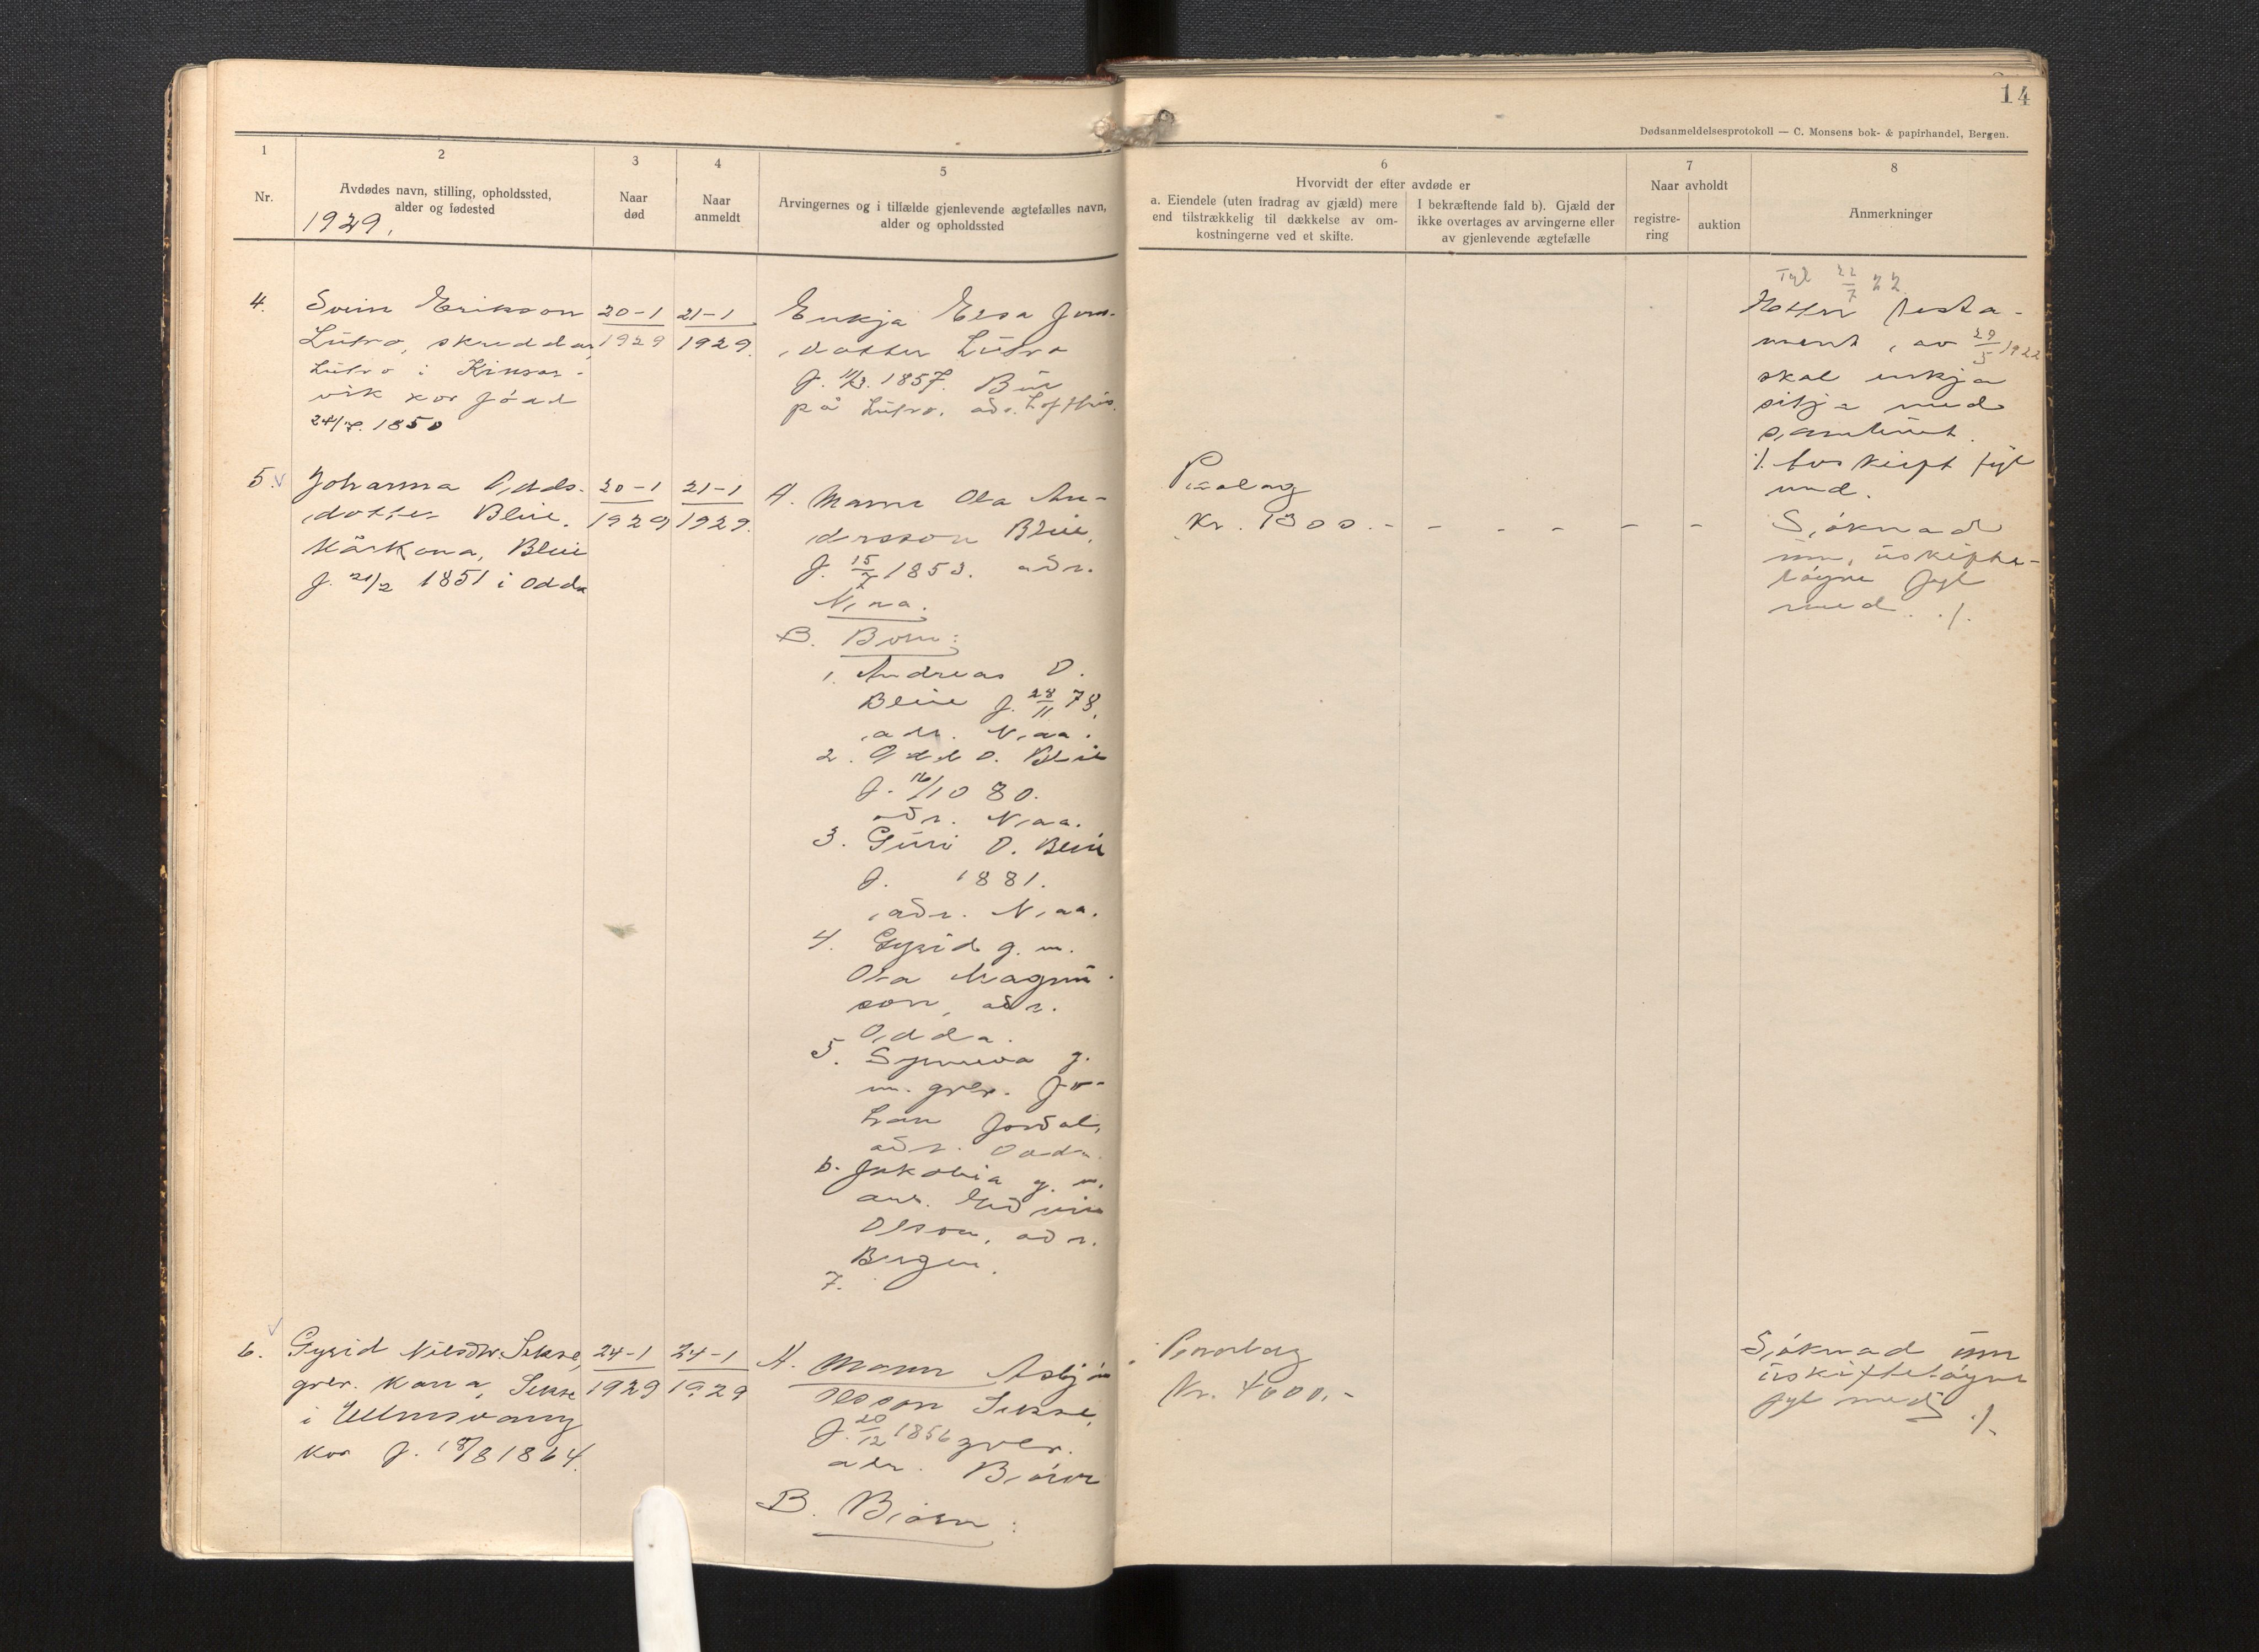 14
Dødsanmeldelsesprotokoll — C. Monsens bok- & papirhandel, Bergen.
1
2
3
4
5
6
7
8
Nr.
Avdødes navn, stilling, opholdssted,
alder og fødested
1929.
Naar
død
Naar
anmeldt
Arvingernes og i tilfælde gjenlevende ægtefælles navn,
alder og opholdssted
Hvorvidt der efter avdøde er
a. Eiendele (uten fradrag av gjæld) mere
end tilstrækkelig til dækkelse av om-
kostningerne ved et skifte.
I bekræftende fald b). Gjæld der
ikke overtages av arvingerne eller
av gjenlevende ægtefælle
Naar avholdt
registre-
ring
auktion
Anmerkninger
4.
Svein Erikson
Lutro, skreddar,
Lutro i Kinsar-
vik kor fødd
24/7. 1850
20-1
1929
21-1
1929.
Enkja Elsa Jons-
dotter Lutro
f. 11/3. 1857. Bur
på Lutro, adr. Lofthus.
22/7 22
Etter testa-
ment, av 29/5 1922
skal enkja
sitja med
sambuet.
med.
5.
Johanna Odds-
dotter Bleie,
Kårkona, Bleie
f. 21/2 1851 i Odda
20-1
1929
21-1
1929.
A. Mann Ola An-
dersson Bleie,
f. 15/7 1853. adr.
Naa.
B. Born:
1. Andreas O.
Bleie f. 28/11 78,
adr. Naa.
2. Odd O. Bleie
f. 16/10 80.
adr. Naa.
3. Guri O. Bleie
f. 1881.
adr. Naa.
4. Gyrid g. m.
Ola Magnu-
son, adr.
Odda.
5. Synneva g.
m. grbr. Jo-
han Jordal,
adr. Odda.
6. Jakobia g. m.
arb. Edvin
Olson, adr.
Bergen.
7.
Kr. 1300.- - - - - -
Søknad
um uskifte-
løyve fyl
med. ./.
6.
Gyrid Nilsdtr. Sekse,
grbr. kona, Sekse
i Ullensvang
kor f. 18/8 1864.
24-1
1929
24-1
1929
A. Mann Asbjørn
Olsson Sekse,
f. 20/12 1856 grbr.
adr. Børve
B. Born:
Kr. 4000.-
Søknad um
uskifteløyve
fyl med
./.